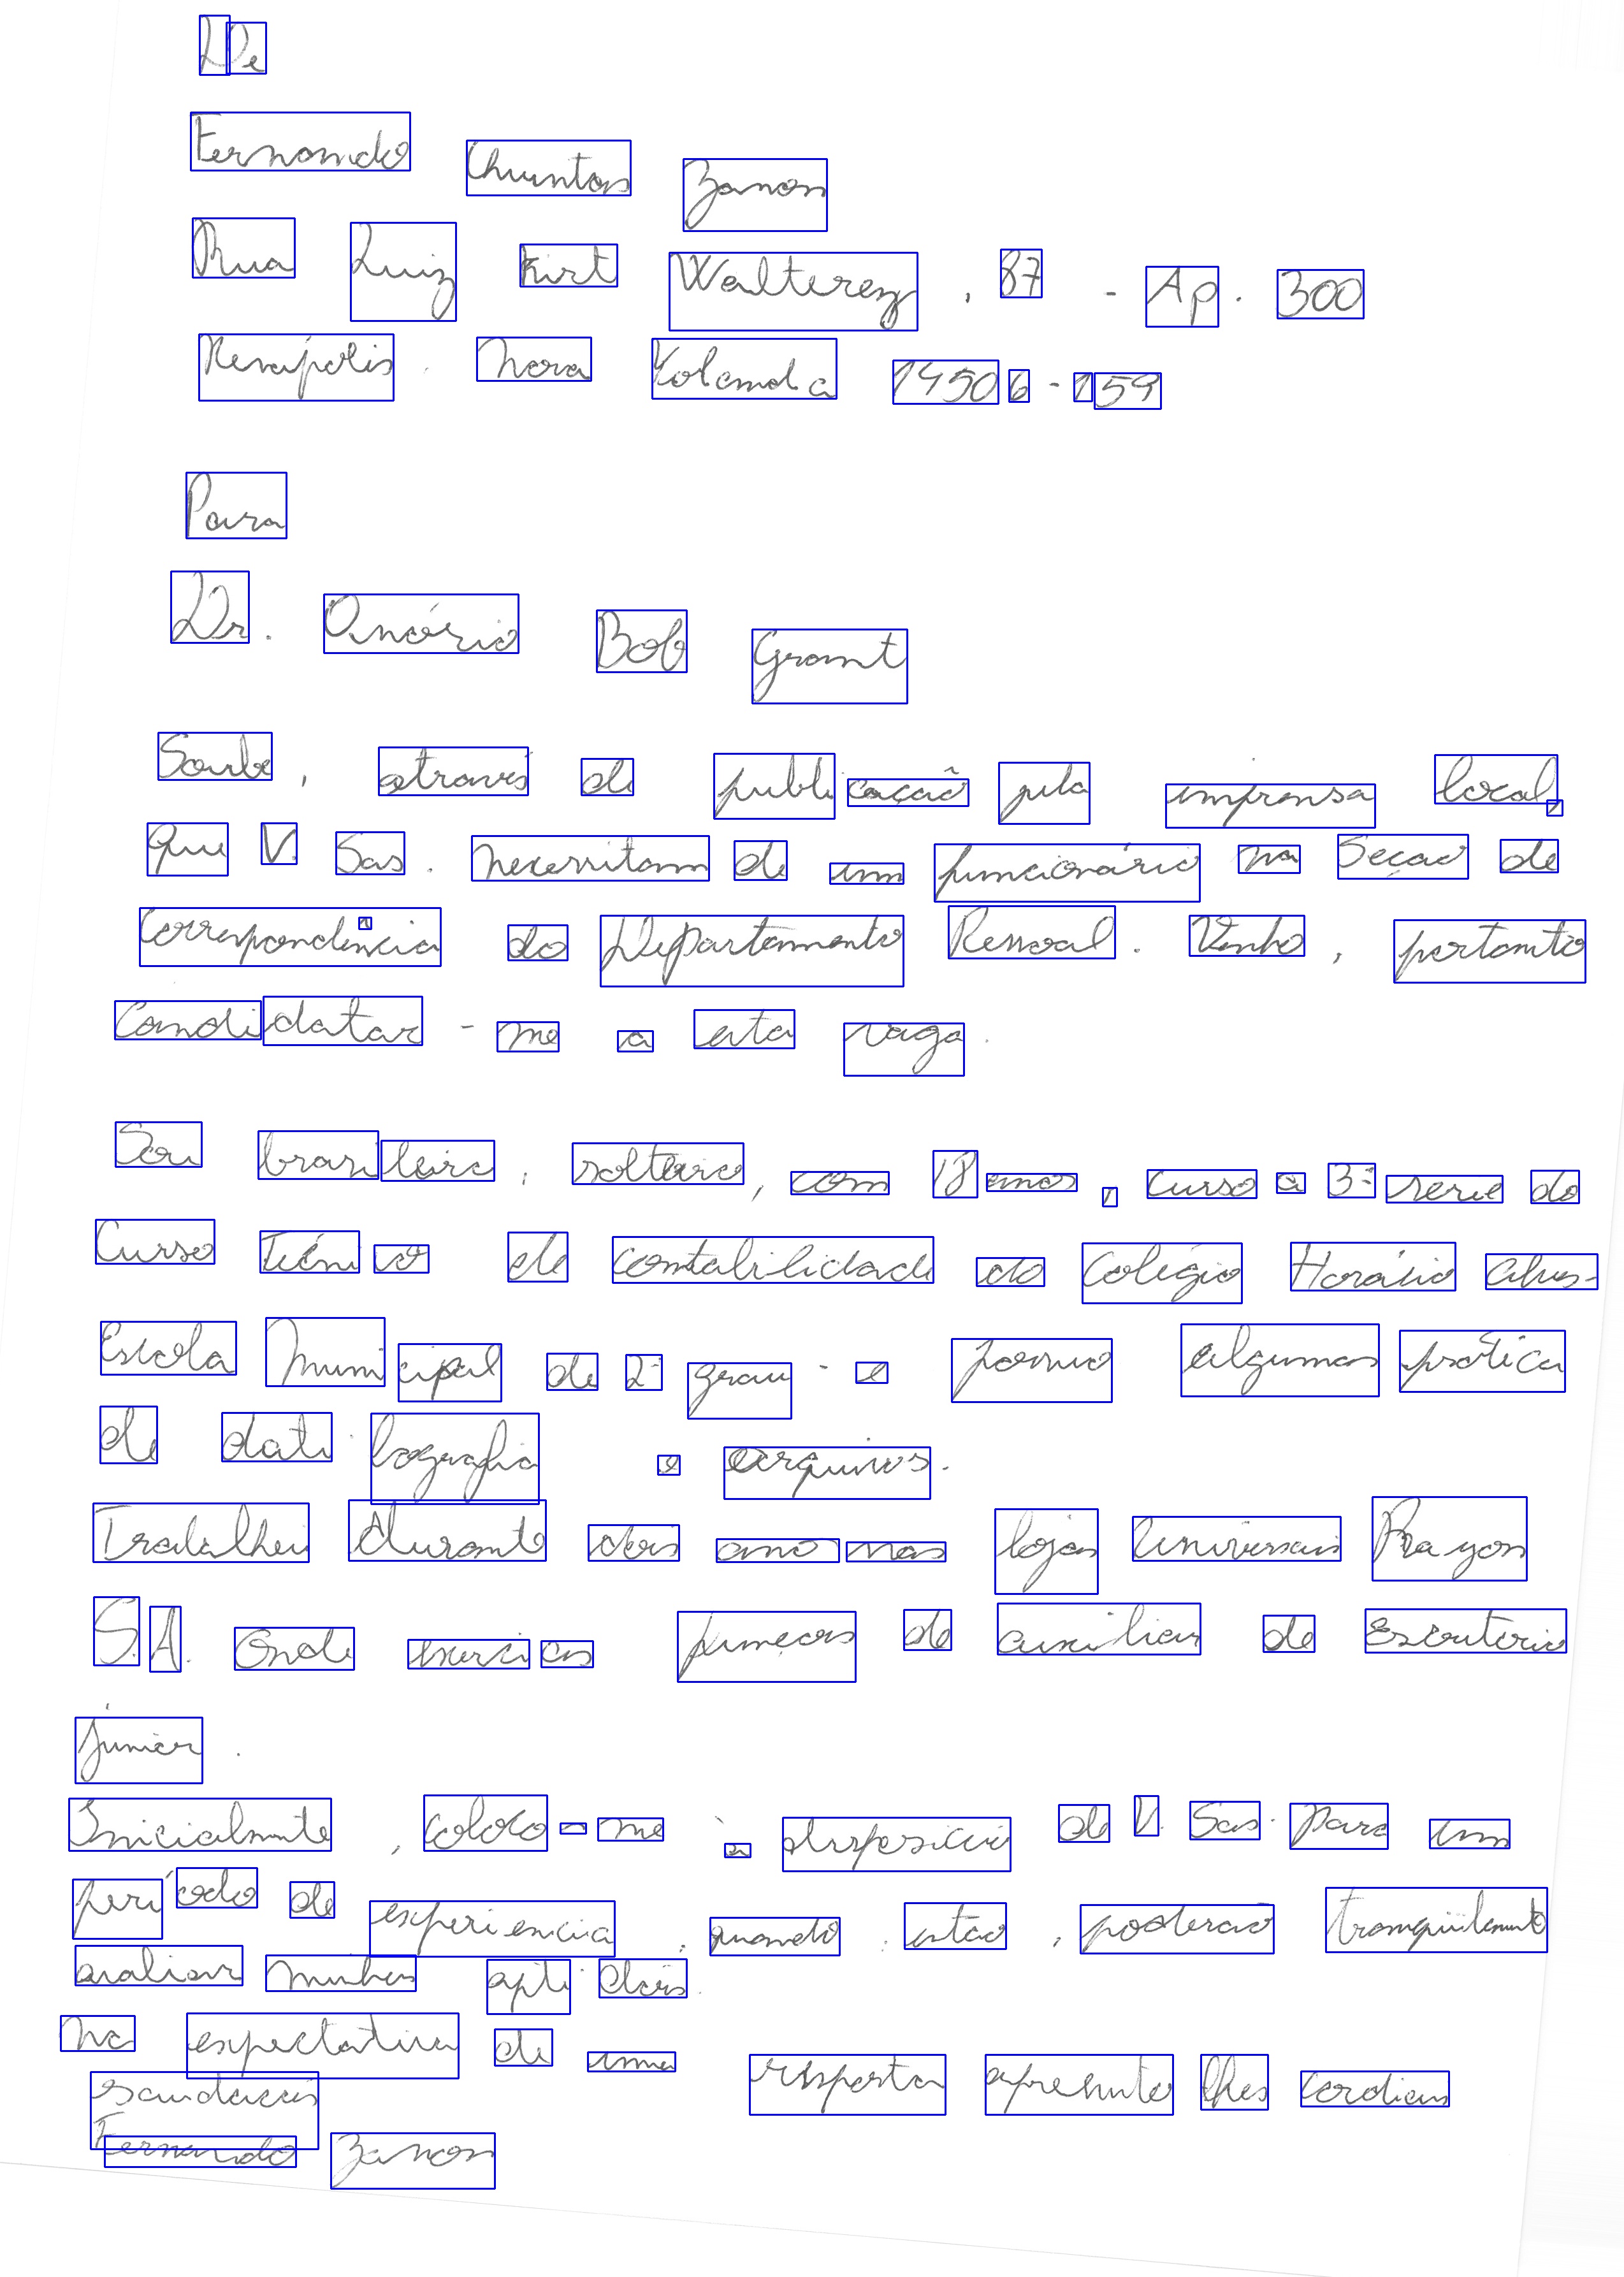 De
Fernando Chuntas Zanon
Rua Luiz Kirt Walterez, 87 - Ap. 300
Nova 14506-159
Para
Dr. Onório Bob Grant
Soube, através de publicação pela imprensa local,
que V. Sas. necessitam de um funcionário na Seção de
Correspondência do Departamento Pessoal. Venho, portanto
Candidatar-me a esta vaga.
Sou brasileiro, solteiro, com 18 anos, curso a 3ª serie do
Curso Técnico de contabilidade do Colégio Horácio
Escola Municipal de 2º grau - e algumas prática
de datilografia e arquivos.
Trabalhei durante dois ano nas lojas Universais Rayon
S.A. Onde exerci as funções de auxiliar de Escritorio
júnior.
Inicialmente, coloco-me à disposição de V. Sas. para um
período de experiencia, quando, estao, poderao tranqüilamente
minhas
na expectativa de uma resposta apresento lhes cordiais
saudacois
Fernando Zanon